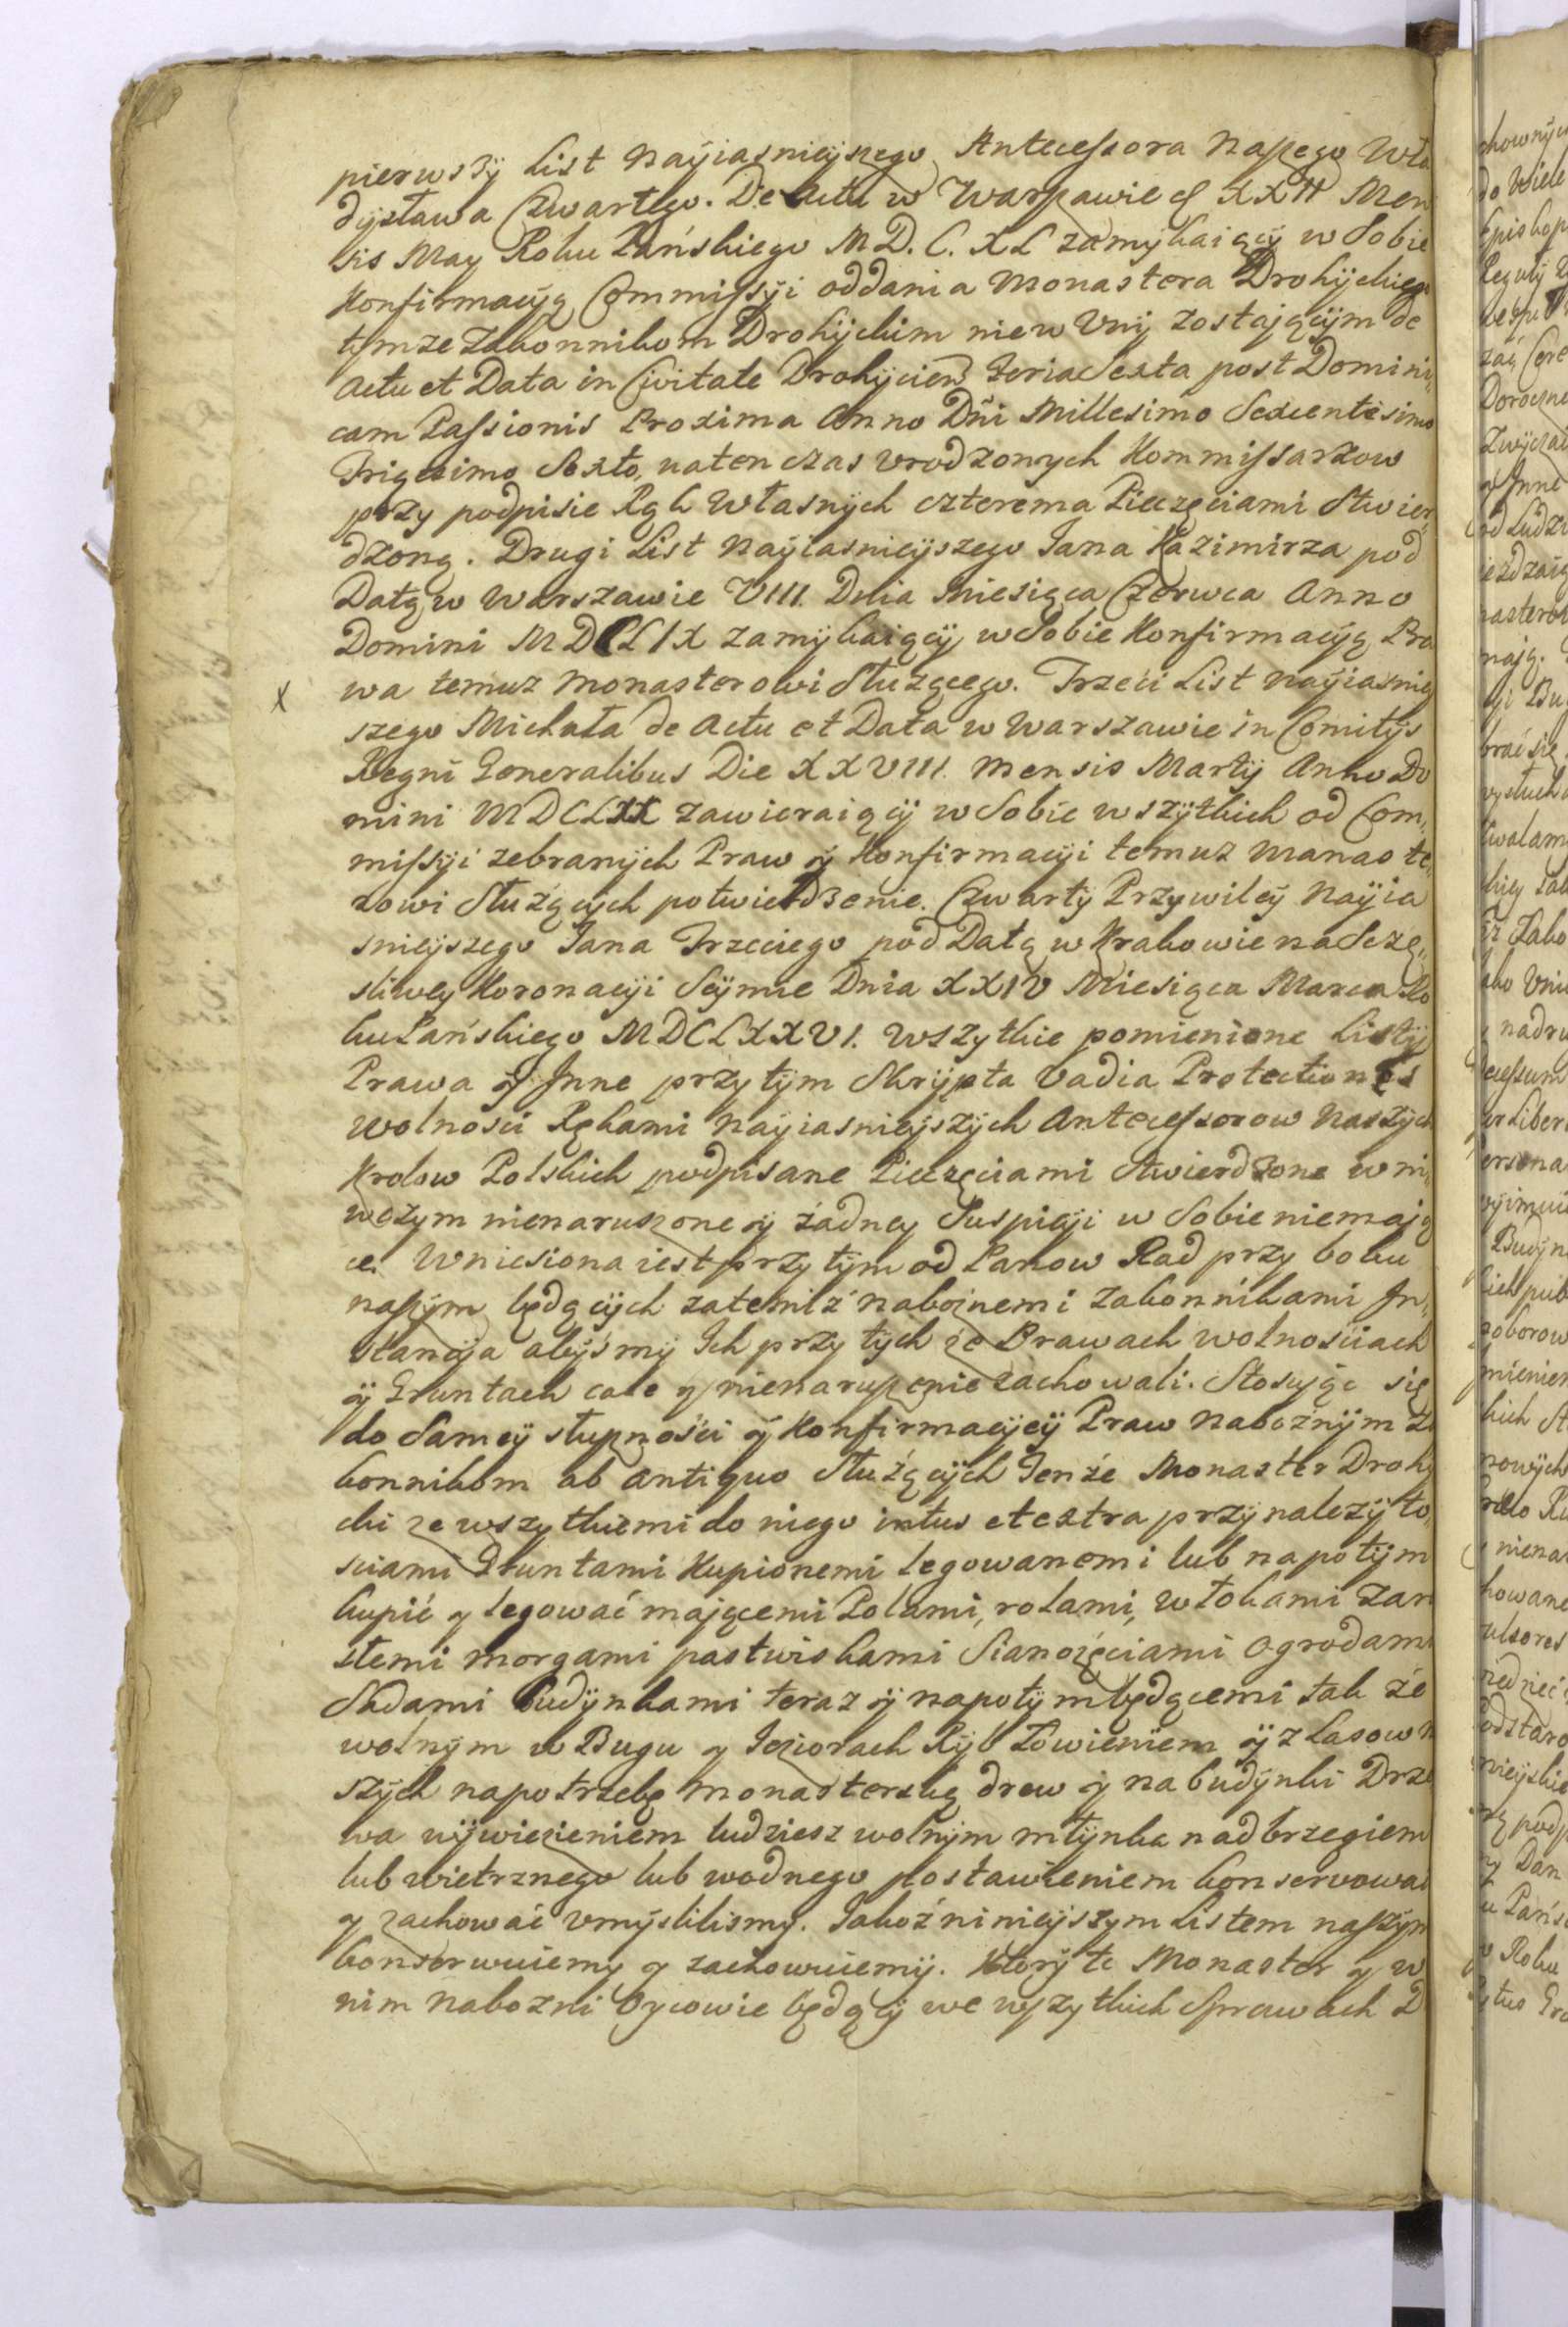 pierwszÿ List Nayiasnieyszego Antecessora Naszego Wła
dysława Czwartego. De Actu w Warszawie d XXII Men
sis May Roku Pańskiego M D. C. XL zamykaiący w Sobie
Konfirmacyą Commissyi oddania Monastera Drohyckiego
tymze Zakonnikom Drohyckim nie w Vnij zostającym de
Actu et Data in Civitate Drohyciens Feria Sexta post Domini,
cam Passionis Proxima Anno Dñi Millesimo Sexcentesimo
Trigesimo Sexto, naten czas Vrodzonych Kommissarzow
przy podpisie Rąk Własnych czterema Pieczęciami Stwier,
dzoną. Drugi List Nayiasnieyszego Jana Kazimirza pod
Datą w Warszawie VIII. Dnia Miesiąca Czerwca Anno
Domini MDCLIX zamykaiący w Sobie Konfirmacyą Pra
x wa temuz Monasterowi Służącego. Trzeci List Nayiasniey
szego Michała de Actu et Data w Warszawie in Comitijs
Regni Generalibus Die XXVIII. Mensis Martij Anno Do
mini MDCLXX zawieraiący w Sobie wszytkich od Com,
missyi zebranych Praw y Konfirmacyi temuz Manaste,
rowi Służących potwierdzenie. Czwarty Przywiley Nayia
snieyszego Jana Trzeciego pod Datą w Krakowie na Szczę,
śliwey Koronacyi Seymie Dnia XXIV Miesiąca Marca Ro
ku Pańskiego MDCLXXVI. Wszytkie pomienione Listy
Prawa y Inne przy tym Skrypta Vadia Protectiones
Wolności Rękami Nayiasnieyszych Antecessorow Naszych
Krolow Polskich podpisane Pieczęciami Stwierdzone w ni,
wczym nienaruszone y żadney Suspicyi w Sobie niemają
ce. Wniesiona iest przy tym od Panow Rad przy boku
naszym będących zatemiż nabożnemi Zakonnikami In,
stancyja abyśmy Ich przy tych że Prawach wolnościach
y Gruntach cale y nienaruszenie zachowali. Stosując się
do Samey słuszności y Konfirmacyey Praw nabożnym Za
konnikom ab antiquo Służących Tenże Monaster Drohy
cki ze wszytkiemi do niego intus et extra przynależyto,
sciami Gruntami Kupionemi legowanemi lub napotym
kupić y legować mającemi Polami, rolami, włokami Zaro
słemi morgami pastwiskami Sianożęciami Ogrodami
Sadami budynkami teraz y napotym będącemi tak że
wolnym w Bugu y Jeziorach Ryb Łowieniem y z Lasow N
szych na potrzebę Monasterską drew y na budynki Drze
wa wywiezieniem tudziesz wolnym młynka nad brzegiem
lub wietrznego lub wodnego postawieniem konserwować
y zachować vmyslilismy. Jakoż ninieyszym Listem naszym
konserwuiemy y zachowuiemy. Który te Monaster y w
nim nabozni Oycowie będący we wszytkich Sprawach D